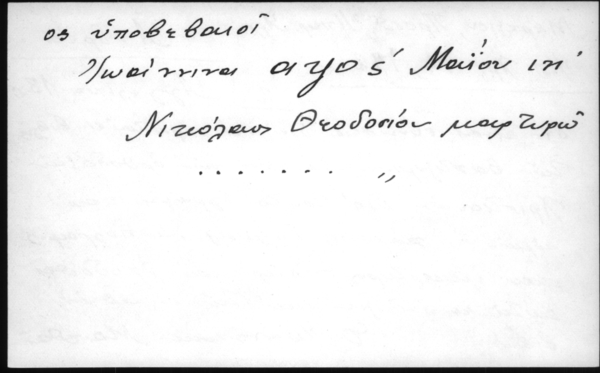 ος ὑποβεβαιοῖ
Ἰωάννινα αψος΄ Μαΐου ιη΄
Νικόλαος Θεοδοσίου μαρτυρῶ
. . . . . . . „